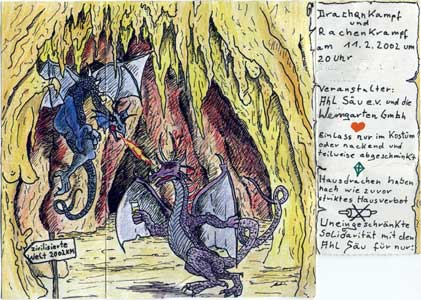 Drachenkampf
und
Rachenkrampf
am 11.2.2002 um
20 Uhr
Veranstalter:
Ahl Säu e.v. und die
Werngarten Gmbh
Einlass nur im Kostüm
oder nackend und
teilweise abgeschminkt
Hausdrachen haben
nach wie zuvor
striktes Hausverbot
Uneingeschränkte
Solidarität mit den
Ahl Säu für nur:
zivilisierte
Welt 2002KM